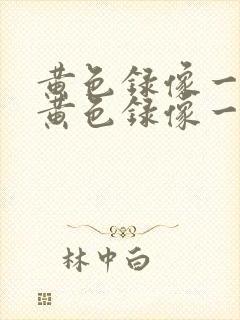 黄色录像一
黄色录像一
林中白